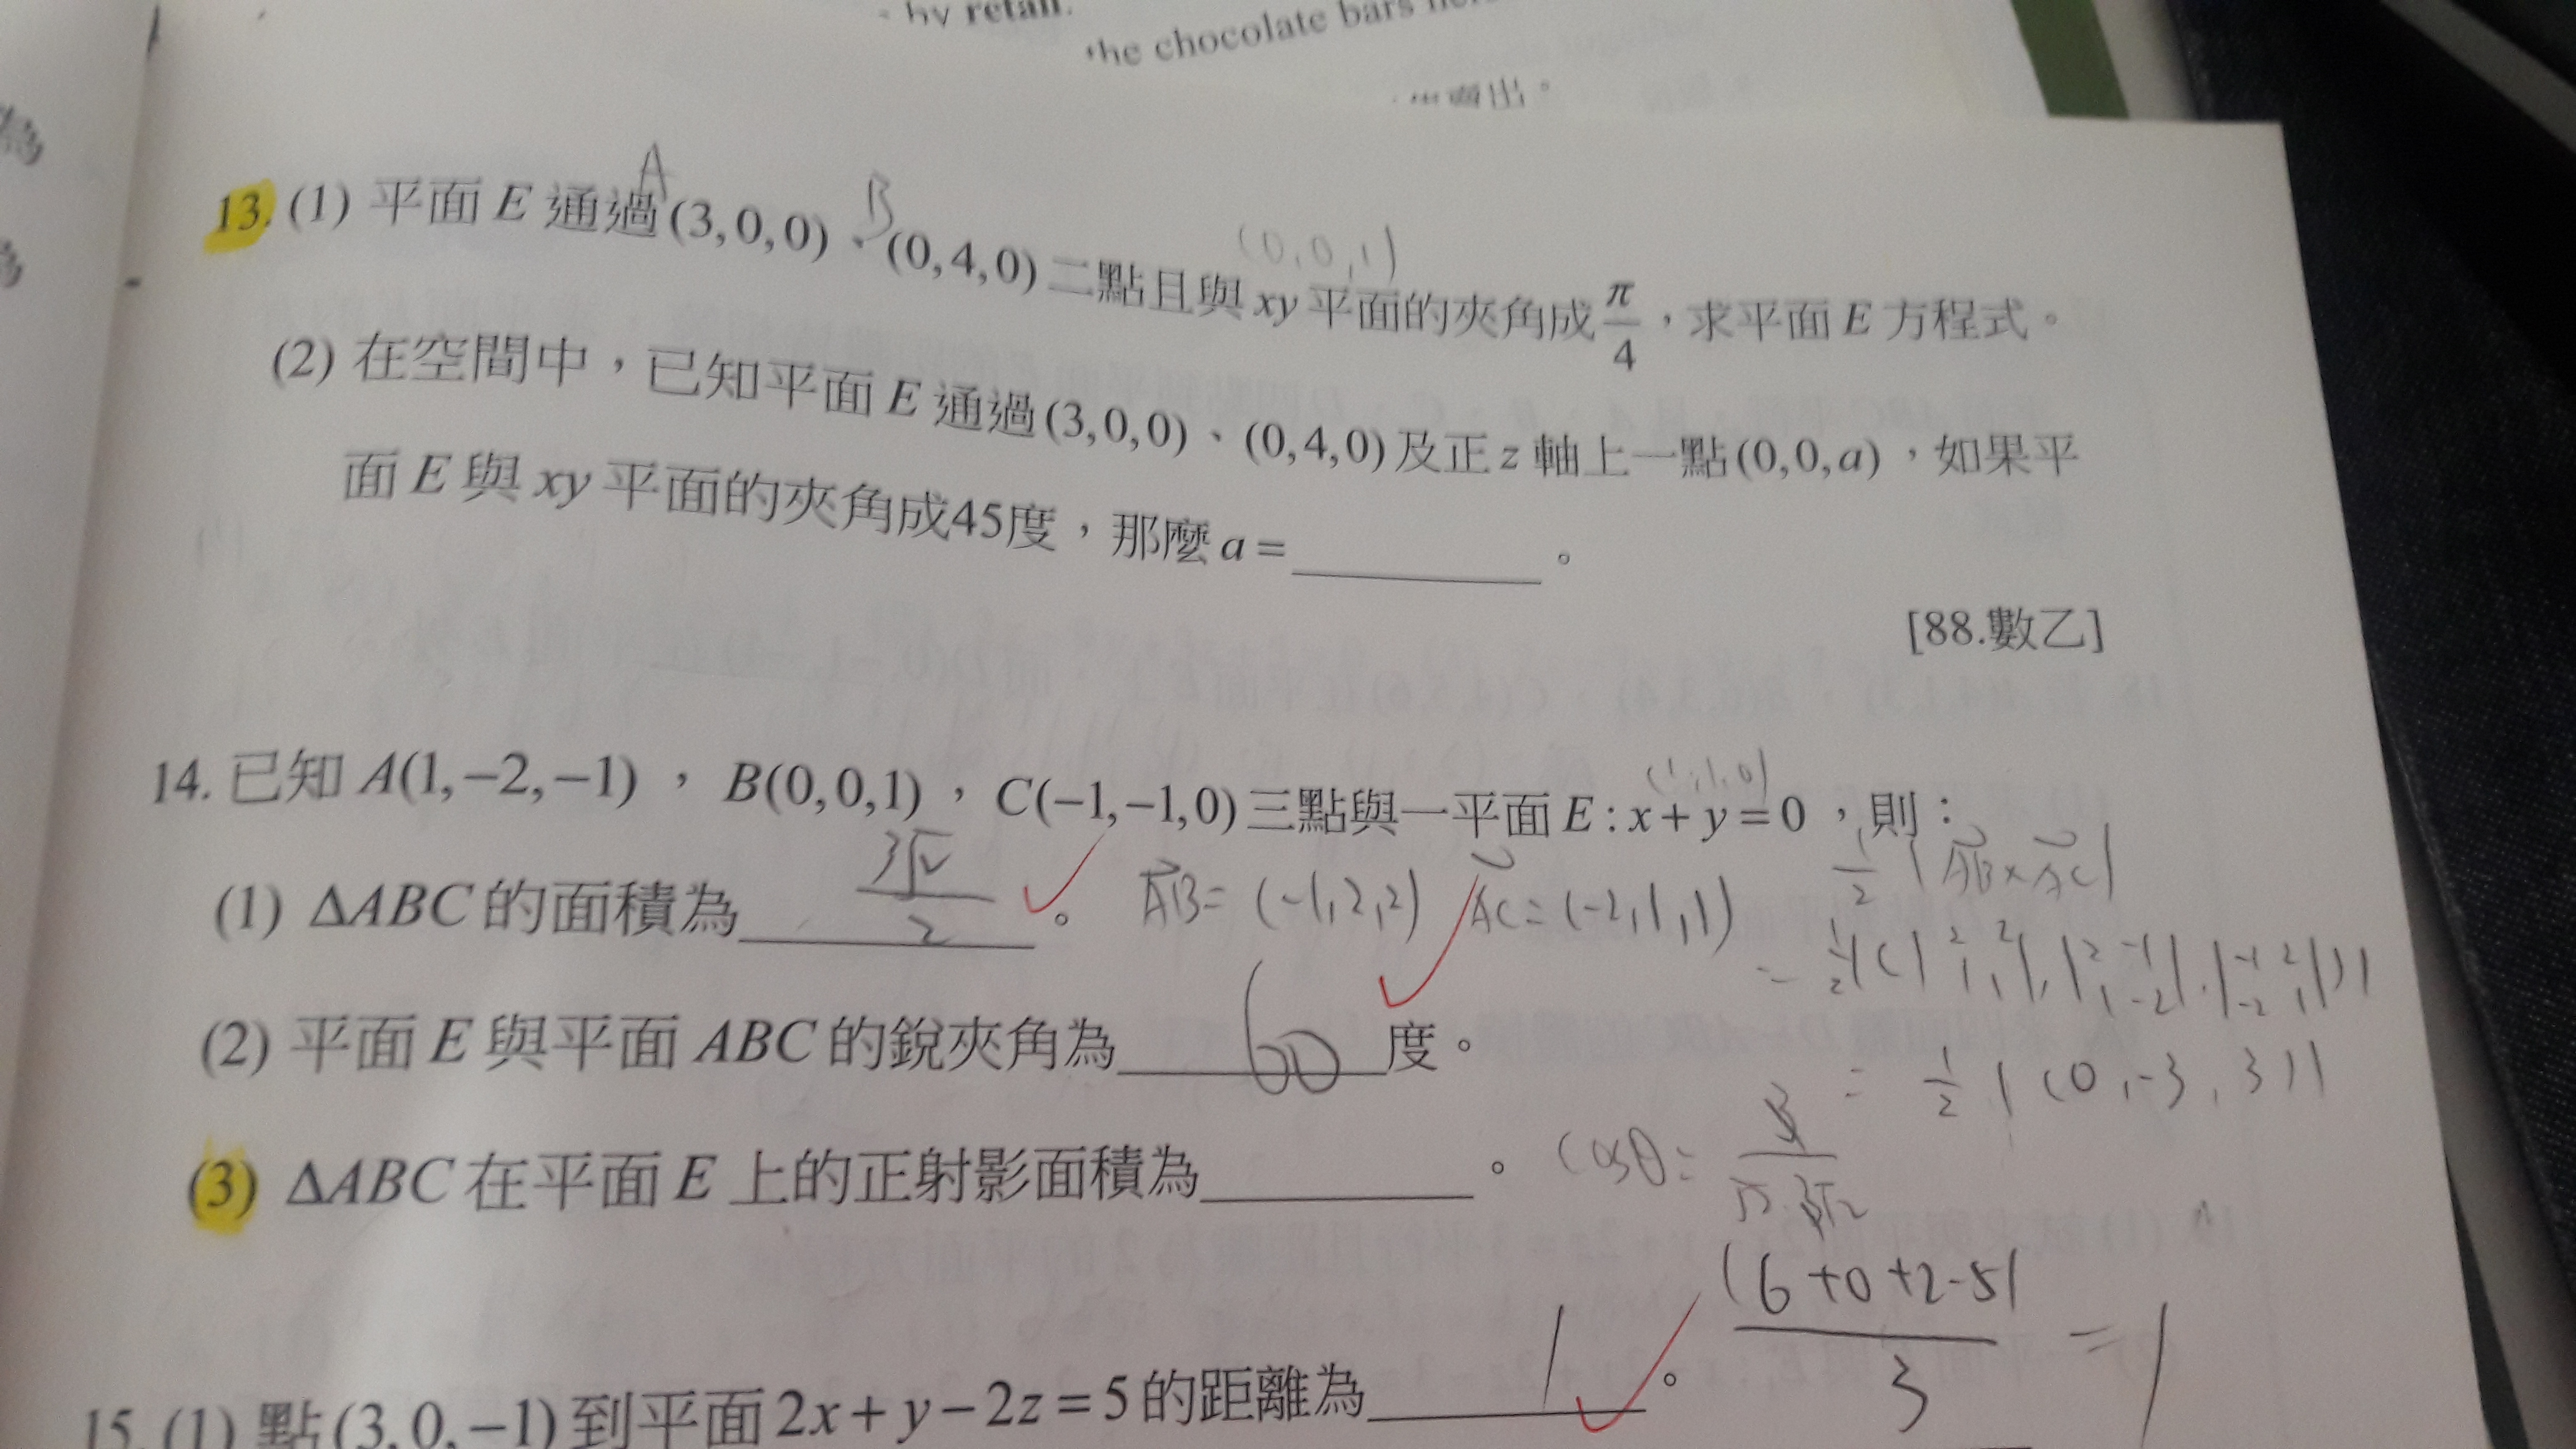 by retail.
the chocolate bars
賣出。
A
B
13. (1) 平面 E 通過(3,0,0)、(0,4,0)二點且與 xy 平面的夾角成 π/4，求平面 E 方程式。
(0,0,1)
(2) 在空間中，已知平面 E 通過(3,0,0)、(0,4,0)及正 z 軸上一點(0,0,a)，如果平
面 E 與 xy 平面的夾角成45度，那麼 a = ________。
[88.數乙]
14. 已知 A(1,−2,−1)，B(0,0,1)，C(−1,−1,0)三點與一平面 E : x + y = 0，則：
(1,1,0)
(1) ΔABC 的面積為 3√2/2 。 AB = (-1,2,2) AC = (-2,1,1)
1/2 |AB×AC|
= 1/2 |(|2 2, 1 1|, |2 -1, 1 -2|, |-1 2, -2 1|)|
= 1/2 |(0,-3,3)|
(2) 平面 E 與平面 ABC 的銳夾角為 60 度。
(3) ΔABC 在平面 E 上的正射影面積為________。
cosθ = 3/√2·3√2
15. (1) 點(3,0,−1)到平面 2x + y − 2z = 5 的距離為 1 。
|6+0+2-5|/3 = 1